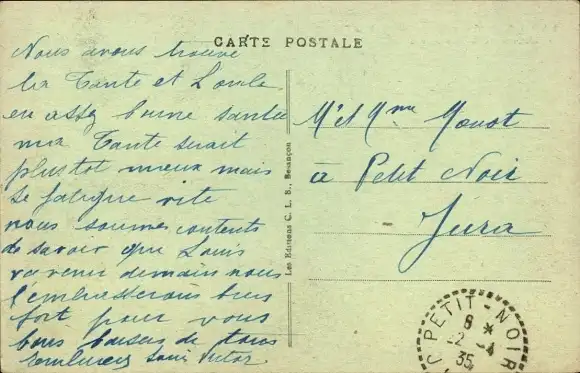 CARTE POSTALE
Nous avons trouvé
la Tante et L'oncle
en assez bonne santée
ma Tante serait
plustot mieux mais
se fatigue vite
nous sommes contents
de savoir que Louis
va venir demain nous
l'embrasserons bien
fort pour vous
bons baisers de tous
Les Editions C. L. B., Besançon
Mr et Mme Monot
à Petit Noir
Jura
PETIT-NOIR
8 *
2 - 4
35